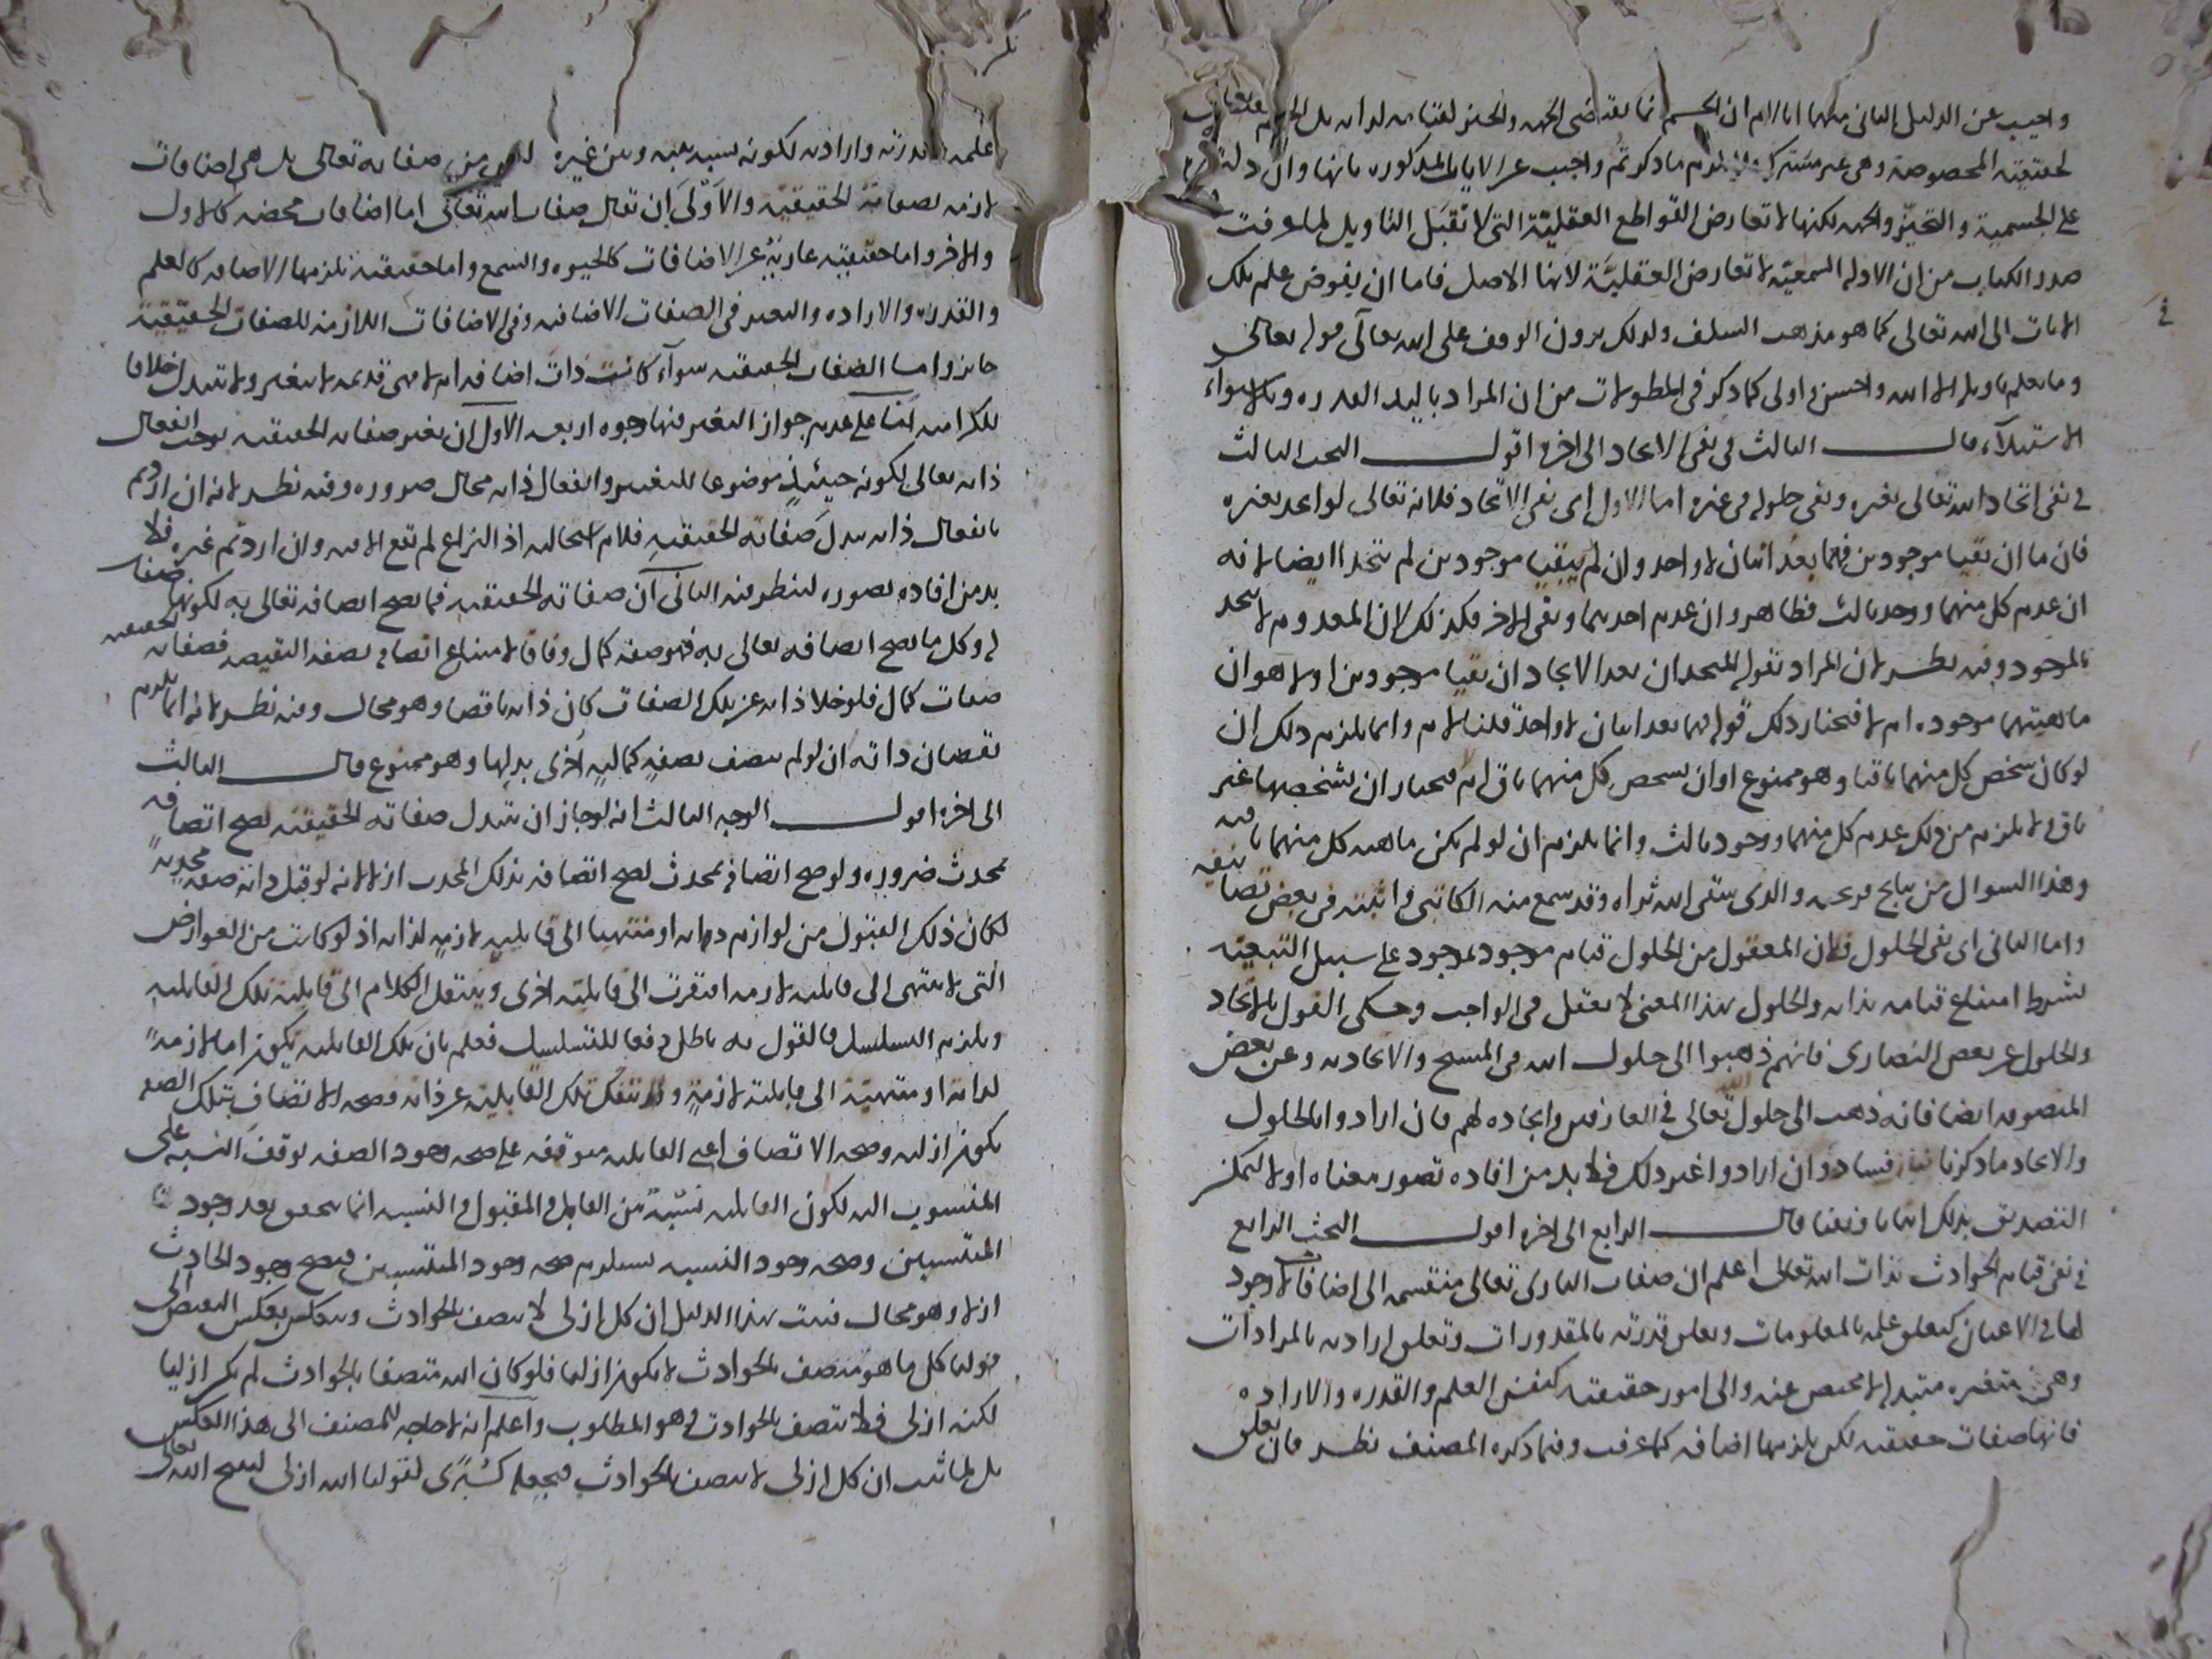 واجيب عن الدليل الثاني منهما انا لا نم ان الجسم انما يقتضي الجهة والحيز لقيامه لذاته بل
لحقيقته المخصوصة وهي غير مشتركة فلا يلزم ما ذكرتم واجيب عن الايات المذكورة بانها وان دلت
على الجسمية والتحيز والجهة لكنها لا تعارض القواطع العقلية التي لا تقبل التاويل لما عرفت
صدر الكتاب من ان الادلة السمعية لا تعارض العقلية لانها الاصل فاما ان يفوض علم تلك
في
الايات الى الله تعالى كما هو مذهب السلف ولذلك يرون الوقف على الله تعالى في قوله تعالى
وما يعلم تاويله الا الله واحسن واولى كما ذكر في المطولات من ان المراد باليد القدرة وبالاستواء
الاستيلاء قال الثالث في نفي الاتحاد الى اخره اقول البحث الثالث
في نفي اتحاد الله تعالى بغيره ونفي حلوله في غيره اما الاول اي نفي الاتحاد فلانه تعالى لو اتحد بغيره
فان ما ان بقيا موجودين فهما بعد اثنان لا واحد وان لم يبقيا موجودين لم يتحدا ايضا لانه
ان عدم كل منهما ووجد ثالث فظاهر وان عدم احدهما وبقي الاخر فكذلك لان المعدوم لا يتحد
بالموجود وفيه نظر لان المراد بقوله المتحدان بعد الاتحاد ان بقيا موجودين او لا هو ان
ماهيتهما موجودة ام لا فنختار ذلك قوله فهما بعد اثنان لا واحد قلنا لا نم وانما يلزم ذلك ان
لو كان تشخص كل منهما باقيا وهو ممنوع او ان تشخص كل منهما باق ام لا فنختار ان تشخصهما غير
باق ولا يلزم من ذلك عدم كل منهما ووجود ثالث وانما يلزم ان لو لم يكن ماهية كل منهما باقية
وهذا السؤال من نتايج قريحة والدي سقى الله ثراه وقد سمع منه الكاتبي واثبته في بعض تصانيفه
واما الثاني اي نفي الحلول فلان المعقول من الحلول قيام موجود بموجود على سبيل التبعية
بشرط امتناع قيامه بذاته والحلول بهذا المعنى لا يعقل في الواجب وحكي القول بالاتحاد
والحلول عن بعض النصارى فانهم ذهبوا الى حلول الله في المسيح والاتحاد به وعن بعض
المتصوفة ايضا فانه ذهب الى حلول الله تعالى في العارفين واتحاده بهم فان ارادوا بالحلول
والاتحاد ما ذكرنا فبان فساده وان ارادوا غير ذلك فلا بد من افادة تصور معناه اولا ليمكن
التصديق بذلك اثباتا ونفيا قال الرابع الى اخره اقول البحث الرابع
في نفي قيام الحوادث بذات الله تعالى اعلم ان صفات الباري تعالى منقسمة الى اضافات لا وجود
لها في الاعيان كتعلق علمه بالمعلومات وتعلق قدرته بالمقدورات وتعلق ارادته بالمرادات
وهي متغيرة متبدلة لا محيص عنه والى امور حقيقية كنفس العلم والقدرة والارادة
فانها صفات حقيقية لكن يلزمها اضافة كما عرفت وفيما ذكره المصنف نظر فان تعلق
علمه وقدرته وارادته لكونه نسبة بينه وبين غيره ليس من صفاته تعالى بل هي اضافات
لازمة لصفاته الحقيقية والاولى ان يقال صفات الله تعالى اما اضافات محضة كالاول
والاخر واما حقيقية عارية عن الاضافات كالحيوة والسمع واما حقيقية تلزمها الاضافة كالعلم
والقدرة والارادة والتغير في الصفات الاضافية وفي الاضافات اللازمة للصفات الحقيقية
جايز واما الصفات الحقيقية سواء كانت ذات اضافة ام لا فهي قديمة لا تتغير ولا تتبدل خلافا
للكرامية لنا على عدم جواز التغير فيها وجوه اربعة الاول ان تغير صفاته الحقيقية يوجب انفعال
ذاته تعالى لكونه حينئذ موضوعا للتغير وانفعال ذاته محال ضرورة وفيه نظر لانه ان اردتم
بانفعال ذاته تبدل صفاته الحقيقية فلا نم استحالته اذ النزاع لم يقع الا فيه وان اردتم غيره فلا
بد من افادة تصوره لينظر فيه الثاني ان صفاته الحقيقية فما يصح اتصافه تعالى به لكونها صفات حقيقية
له وكل ما يصح اتصافه تعالى به فهو صفة كمال وفاقا لامتناع اتصافه بصفة النقيصة فصفاته
صفات كمال فلو خلا ذاته عن تلك الصفات كان ذاته ناقصا وهو محال وفيه نظر لانه انما يلزم
نقصان ذاته ان لو لم يتصف بصفة كمالية اخرى بدلها وهو ممنوع قال الثالث
الى اخره اقول الوجه الثالث انه لو جاز ان تتبدل صفاته الحقيقية لصح اتصافه
بمحدث ضرورة ولو صح اتصافه بمحدث لصح اتصافه بذلك المحدث ازلا لانه لو قبل ذاته صفة محدثة
لكان ذلك القبول من لوازم ذاته او منتهيا الى قابلية لازمة لذاته اذ لو كانت من العوارض
التي لا تنتهي الى قابلية لازمة افتقرت الى قابلية اخرى وينتقل الكلام الى قابلية تلك القابلية
ويلزم التسلسل فالقول به باطل دفعا للتسلسل فعلم بان تلك القابلية تكون اما لازمة
لذاته او منتهية الى قابلية لازمة ولا تنفك تلك القابلية عن ذاته فصحة الاتصاف بتلك الصفة
تكون ازلية وصحة الاتصاف اعني القابلية متوقفة على صحة وجود الصفة لوقف النسبة على
المنسوب اليه لكون القابلية نسبة بين القابل والمقبول والنسبة انما تتحقق بعد وجود
المنتسبين وصحة وجود النسبة يستلزم صحة وجود المنتسبين فيصح وجود الحادث
ازلا وهو محال فثبت بهذا الدليل ان كل ازلي لا يتصف بالحوادث وينعكس بعكس النقيض الى
قولنا كل ما هو متصف بالحوادث لا يكون ازليا فلو كان الله متصفا بالحوادث لم يكن ازليا
لكنه ازلي فلا يتصف بالحوادث وهو المطلوب واعلم انه لا حاجة للمصنف الى هذا العكس
بل لما ثبت ان كل ازلي لا يتصف بالحوادث فيجعله كبرى لقولنا الله ازلي لينتج الله تعالى